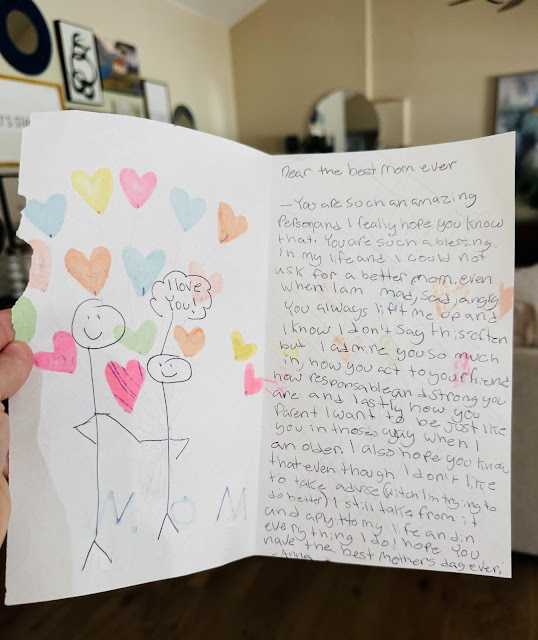 I love
You!
MOM
Dear the best mom ever
- You are such an amazing
Person and I really hope you know
that. You are such a blessing
in my life and I could not
ask for a better mom, even
when I am mad, sad, angry
You always lift me up and
I know I don't say this often
but I admire you so much
in how you act to your friend
how responsable and strong you
are and lastly how you
Parent I want to be just like
you in those way when I
an older. I also hope you know
that even though I don't like
to take advise (witch I'm trying to
do better) I still take from it
and aply it to my life and in
everything I do I hope you
have the best mothers dag ever!